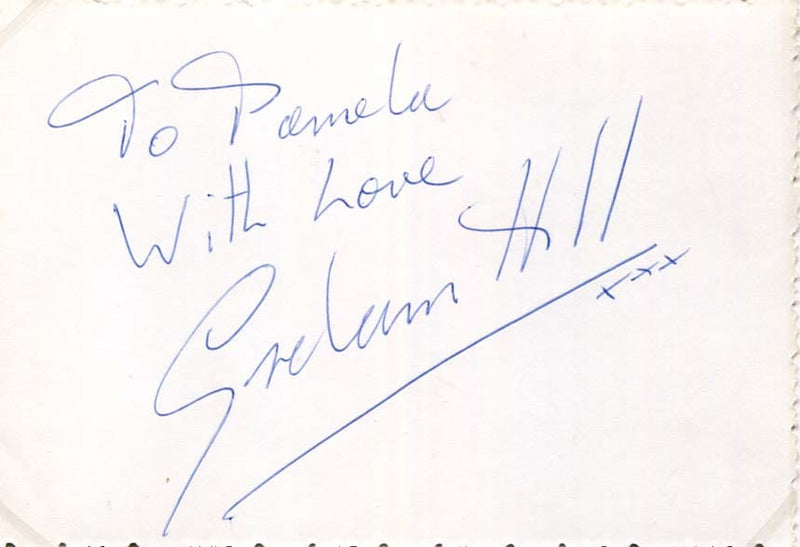 To Pamela
With Love
Graham Hill
xxx